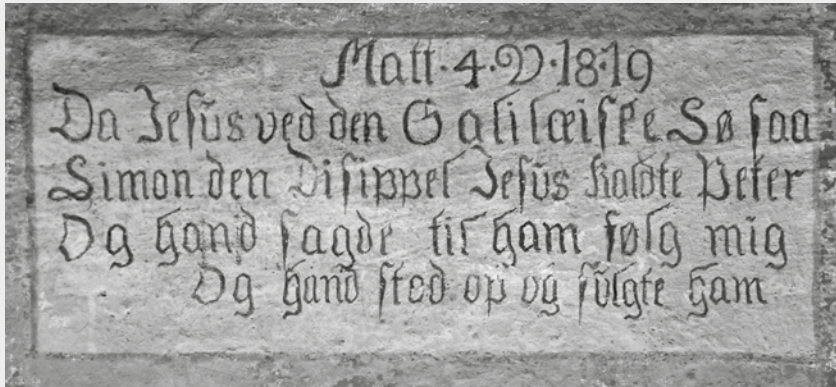 Matt. 4. V. 18.19
Da Jesũs ved den Galilæiske Sø saa
Simon den Disippel Jesũs kaldte Peter
Og hand sagde til ham følg mig
Og hand stod op og fũlgte ham